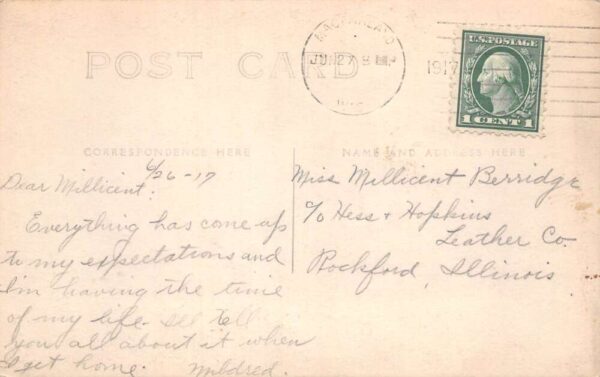 McFARLAND
JUN 27 8 M
WIS.
1917
U.S. POSTAGE
1 CENT 1
POST CARD
CORRESPONDENCE HERE
NAME AND ADDRESS HERE
6/26-17
Dear Millicent:
Everything has come up
to my expectations and
I'm having the time
of my life. I'll tell
you all about it when
I get home. Mildred.
Miss Millicent Berridge
c/o Hess + Hopkins
Leather Co.
Rockford, Illinois